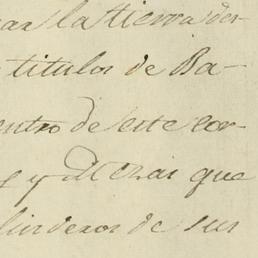 ar la tierra des-
titulos de Ba-
entro de este cor-
y que
linderos de sus